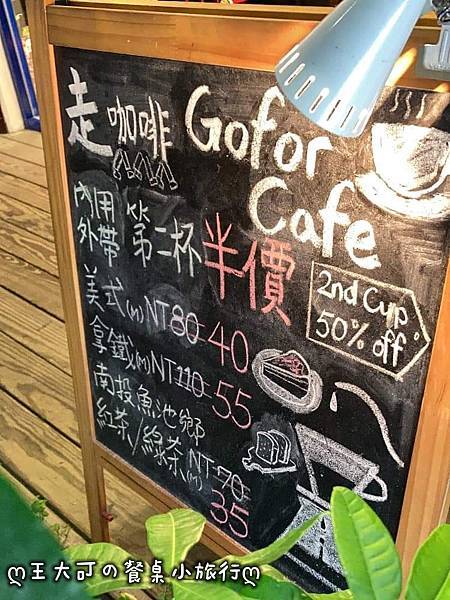 走咖啡 Gofor Cafe
內用
外帶 第二杯半價
2nd Cup
50% off
美式(M)NT80 40
拿鐵(M)NT110 55
南投魚池鄉
紅茶/綠茶(M)NT 70 35
ღ王大可の餐桌小旅行ღ